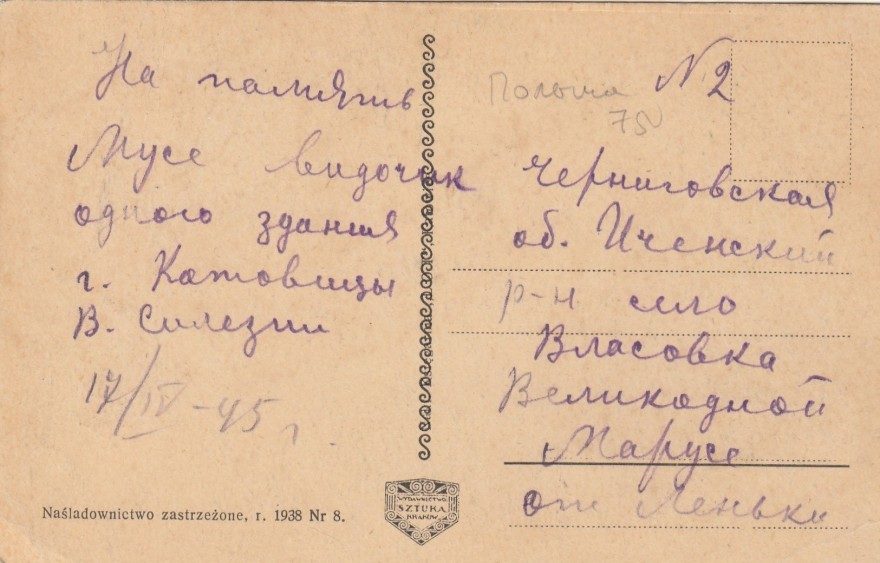 На память
Мусе видочик
одного здания
г. Катовицы
В. Силезии
17/IV-45 г.
Naśladownictwo zastrzeżone, r. 1938 Nr 8.
WYDAWNICTWO
SZTUKA
KRAKÓW
Польша
N 2
75
Черниговская
об. Иченский
р-н село
Власовка
Великодной
Марусе
от Леньки